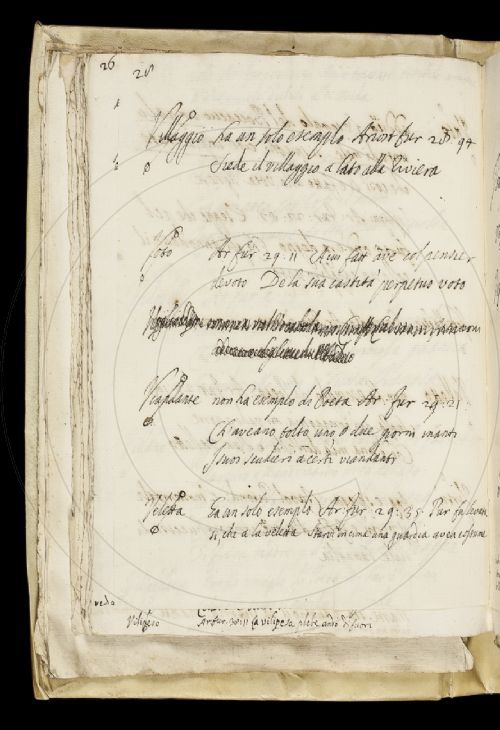 26
28
Villaggio ha un solo esempio Ariost fur 28. 94
Siede il villaggio a lato alla riviera
Voto Ar fur 29. 11 Acui fatt ave col pensier
devoto De la sua castità perpetuo voto
Viandante non ha esempio di Poeta Ar. fur 29. 21
Ch'aveano tolto uno o due giorni inanti
I suoi scudieri a certi viandanti
Veletta ha un solo esempio Ar. fur 29. 35 Pur
si, che a la veletta Starvi in cima una guardia avea costume
vedo
Vilipeso Ar fur la vilipesa plebe